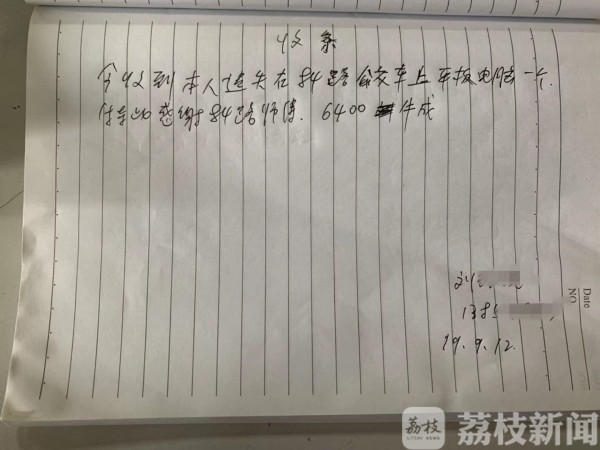 收条
今收到本人遗失在84路公交车上平板电脑一个.
特此感谢84路师傅. 6400 牛成
刘
138
19.9.12.
Date
NO
荔枝
LITCHI NEWS
荔枝新闻